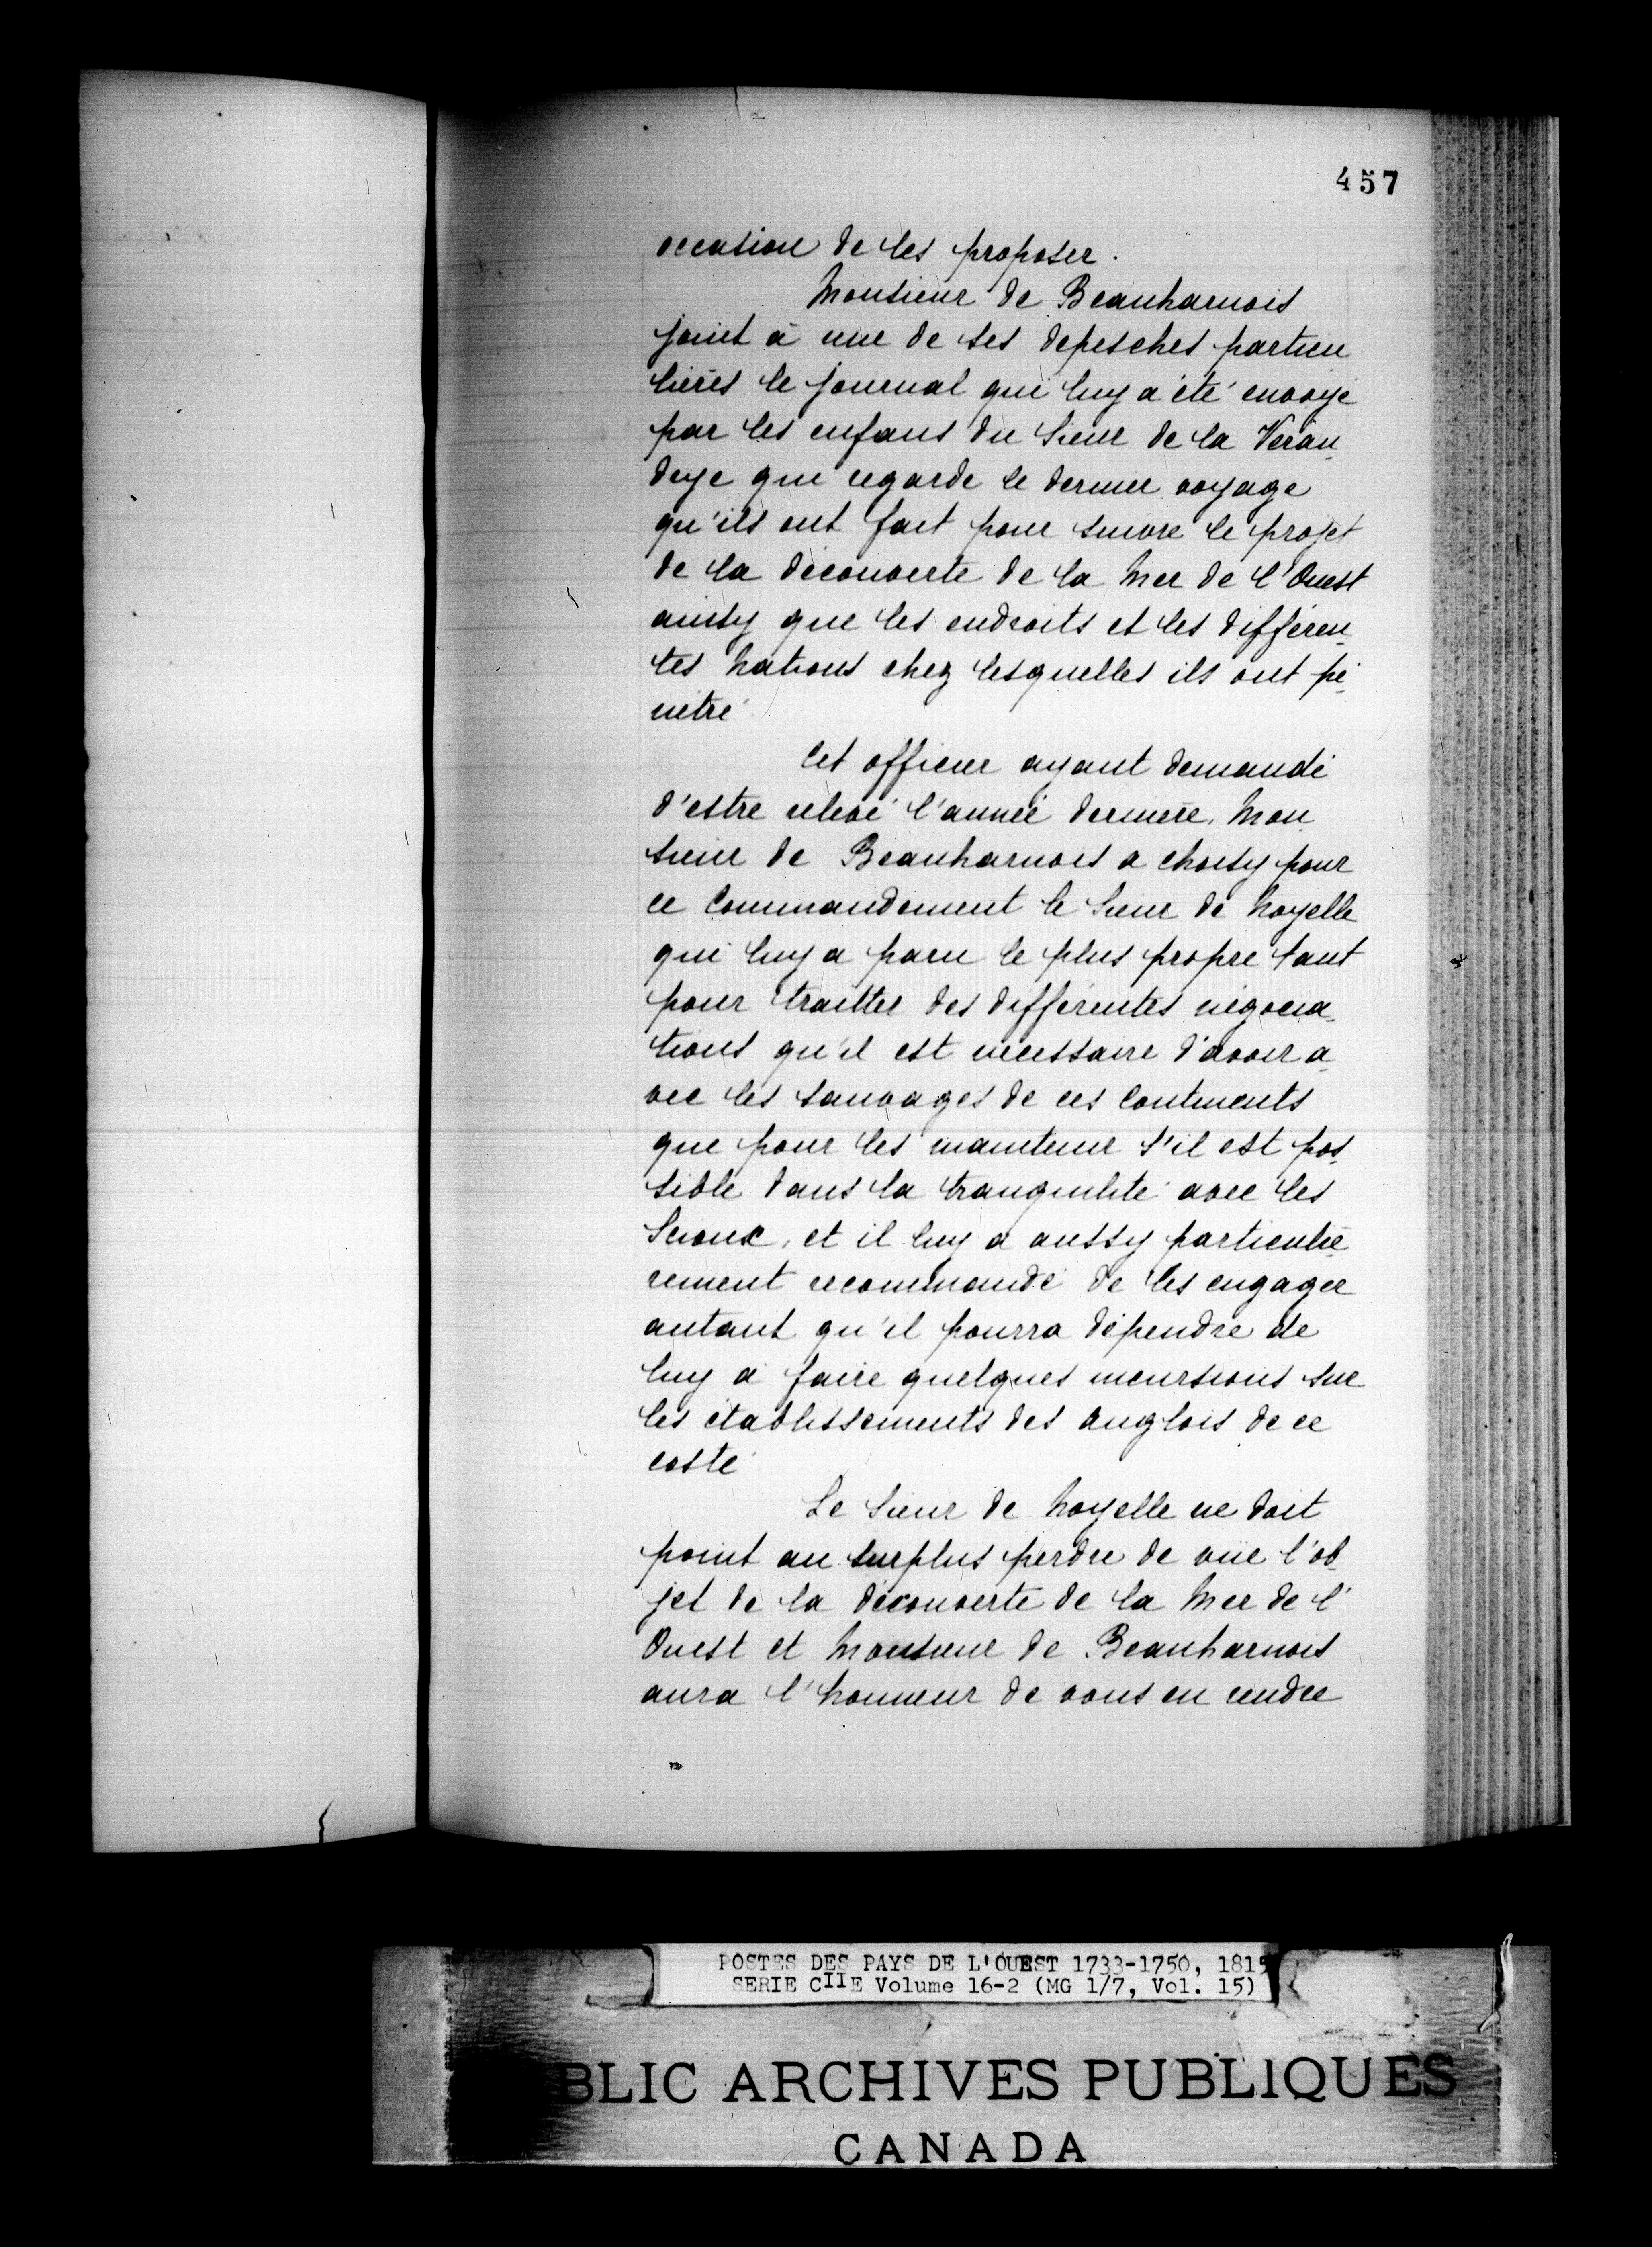 457
occasion de les proposer.
Monsieur de Beauharnois
joint à une de ses depesches particu
lières le journal qui luy a été envoyé
par les enfans du Sieur de la Véran-
drye qui regarde le dernier voyage
qu'ils ont fait pour suivre le projet
de la découverte de la Mer de l'Ouest
ainsy que les endroits et les différen-
tes Nations chez lesquelles ils ont pé-
nétré
Cet officier ayant demandé
d'estre relevé l'année dernière, Mon
sieur de Beauharnois a choisy pour
ce Commandement le Sieur de Noyelle
qui luy a paru le plus propre tant
pour traitter des différentes négocia-
tions qu'il est nécessaire d'avoir a-
vec les sauvages de ces Continents
que pour les maintenir s'il est pos-
sible dans la tranquilité avec les
Scioux, et il luy a aussy particuliè-
rement recommandé de les engager
autant qu'il pourra dépendre de
luy à faire quelques incursions sur
les établissements des anglois de ce
costé
Le Sieur de Noyelle ne doit
point au surplus perdre de vüe l'ob-
jet de la découverte de la Mer de l'
Ouest et Monsieur de Beauharnois
aura l'honneur de vous en rendre
POSTES DES PAYS DE L'OUEST 1733-1750, 1815
SERIE CIIE Volume 16-2 (MG 1/7, Vol. 15)
BLIC ARCHIVES PUBLIQUES
CANADA